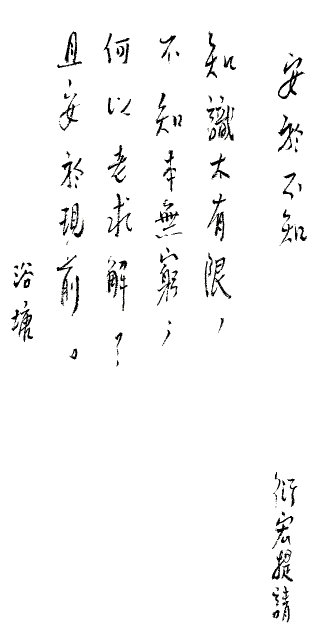 安於不知
知識本有限，
不知本無窮；
何以老求解？
且安於現前。
浴塘
衍宏提請